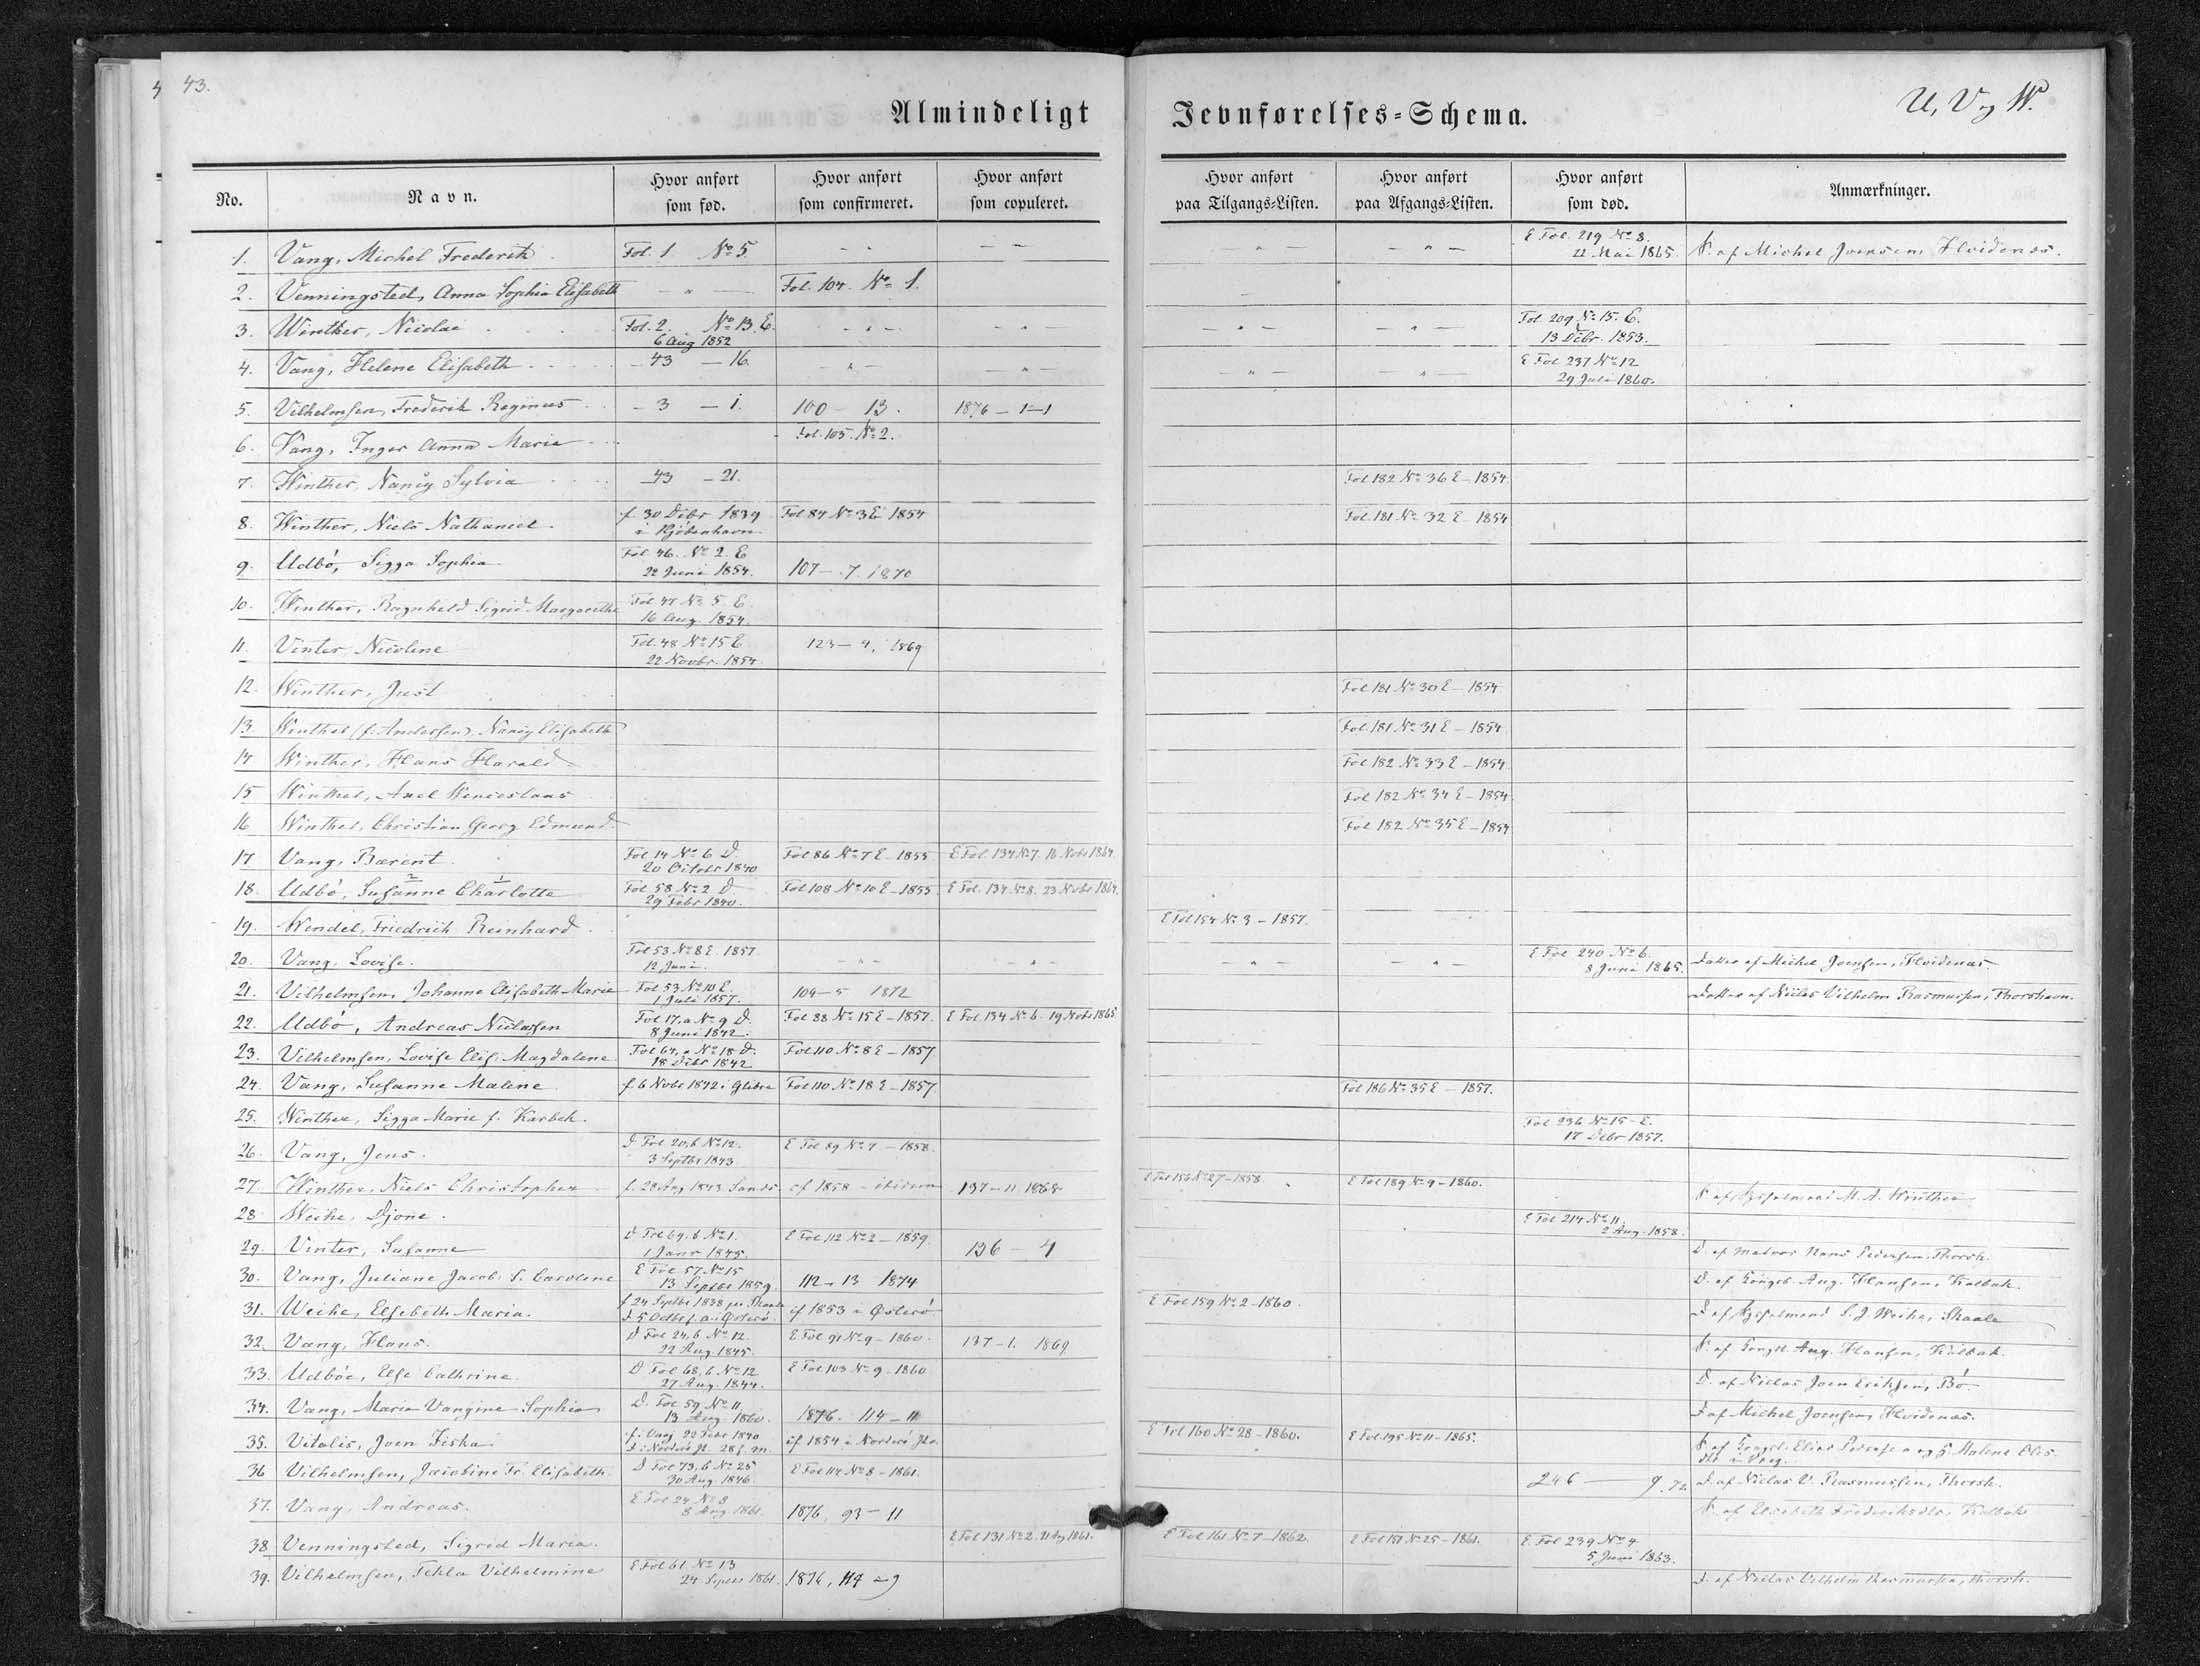 43.
Almindeligt Jevnførelses=Schema.
U, V og W.
No. Navn. Hvor anført som fød. Hvor anført som confirmeret. Hvor anført som copuleret. Hvor anført paa Tilgangs=Listen. Hvor anført paa Afgangs=Listen. Hvor anført som død. Anmærkninger.
1. Vang, Michel Frederik Fol. 1 No 5. E Fol. 219 No 8. 22 Mai 1865. S. af Michel Joensen, Hvidenæs.
2. Venningsted, Anna Sophia Elisabeth Fol. 104. No 1.
3. Winther, Nicolai Fol. 2. No 13. E. 6 Aug 1852 Fol. 209 No 15. E. 13 Decbr. 1853.
4. Vang, Helene Elisabeth – 43 – 16. E Fol 237 No 12 29 Juli 1860.
5. Vilhelmsen, Frederik Reginus – 3 – 1. 100 – 13. 1876 – 1–1
6. Vang, Inger Anna Maria Fol. 105. No 2.
7. Winther, Nancy Sylvia 43 – 21. Fol 182 No 36 E – 1854
8. Winther, Niels Nathaniel f. 30 Decbr 1839 i Kjøbenhavn Fol 84 No 3 E 1854 Fol. 181 No 32 E 1854
9. Udbó, Sigga Sophia Fol. 46. No 2. E 22 Juni 1854. 107 – 7. 1870
10. Winther, Ragnheld Sigrid Margarethe Fol 47 No 5 E. 16 Aug. 1854.
11. Vinter, Nicoline Fol. 48 No 15 E. 22 Novbr. 1854. 123 – 4, 1869
12. Winther, Just Fol 181 No 30 E – 1854
13. Winther (f. Andersen), Nancy Elisabeth Fol 181 No 31 E – 1854
14. Winther, Hans Harald Fol 182 No 33 E – 1854
15 Winther, Axel Wenceslaus Fol 182 No 34 E – 1854
16 Winther, Christian Georg Edmund Fol 182 No 35 E – 1854
17 Vang, Barent. Fol 14 No 6 D. 20 Octobr 1840 Fol 86 No 7 E – 1855 E Fol. 134 No 7. 16 Novbr 1864.
18. Udbó, Susanne Charlotte Fol 58 No 2 D. 29 Febr 1840. Fol 108 No 10 E – 1855 E Fol. 134 No 8. 23 Novbr 1864.
19. Wendel, Friedrich Reinhard E Fol 154 No 3 – 1857.
20. Vang, Lovise. Fol 53 No 8 E. 1857 12 Juni. E Fol 240 No 6. 8 Juni 1865. Datter af Michel Joensen, Hvidenæs
21. Vilhelmsen, Johanne Elisabeth Marie Fol 53 No 10 E. 1 Juli 1857. 109 – 5 1872 Datter af Niclas Vilhelm Rasmussen, Thorshavn.
22. Udbó, Andreas Niclassen Fol 17, a No 9 D. 8 Juni 1842. Fol 88 No 15 E – 1857. E Fol 134 No 6. 19 Novbr 1865
23. Vilhelmsen, Lovise Elis. Magdalene Fol 64, a No 18 D. 18 Decbr 1842 Fol 110 No 8 E – 1857
24. Vang, Susanne Malene f. 6 Novbr 1842 i Glibre Fol 110 No 18 E – 1857. Fol 186 No 35 E – 1857.
25. Winther, Sigga Marie f. Karbek. Fol 236 No 15 – E. 17 Decbr 1857.
26. Vang, Jens. D Fol 20, b No 12. 3 Septbr 1843 E Fol 89 No 7 – 1858.
27. Winther, Niels Christopher f. 28 Aug 1843 Sandö cf 1858 – ibidem 137 – 11. 1868 E Fol 156 No 27 – 1858. E Fol 189 No 9 – 1860. S. af Sysselmand M. A. Winther
28. Weihe, Djone. E Fol 214 No 11. 2 Aug. 1858.
29. Vinter, Susanne D Fol 69, b No 1. 1 Janr 1845. E Fol 112 No 2 – 1859. 136 – 4 D. af Matros Hans Pedersen, Thorsh.
30. Vang, Juliane Jacob. S. Caroline E Fol 57 No 15 13 Septbr 1859. 112 – 13 1874 D. af Kongsb. Aug. Hansen, Kalbak.
31. Weihe, Elsebeth Maria. f 24 Septbr 1838 cf 1853 i Østerö E Fol 159 No 2 – 1860. D af Sysselmand S. J. Weihe, Skaale
32. Vang, Hans. D Fol 24, b No 12. 22 Aug. 1845. E Fol 91 No 9 – 1860. 137 – 1. 1869 S. af Kongsb. Aug. Hansen, Kalbak.
33. Udbóe, Else Cathrine. D Fol 68, b No 12 27 Aug. 1844. E Fol 103 No 9 – 1860 D. af Niclas Joen Eriksen, Bö
34. Vang, Maria Vangine Sophia D. Fol 59 No 11 13 Aug 1860. 1876. 114 – 11 D af Michel Joensen, Hvidenæs.
35. Vitalis, Joen Fiska f. Vaag 22 Febr 1840 cf 1854 i Norderö E Fol 160 No 28 – 1860. E Fol 195 No 11 – 1865. S. af Kongsb. Elias Pedersen og h. Malene Oles dtr i Vaag.
36 Vilhelmsen, Jacobine Fr. Elisabeth. D Fol 73, b No 25 30 Aug. 1846. E Fol 114 No 8 – 1861. 246 – 9. 72 D. af Niclas V. Rasmussen, Thorsh.
37. Vang, Andreas. E Fol 24 No 8 8 Aug. 1861. 1876, 93 – 11 S. af Elsebeth Frederiksdtr, Kalbak
38 Venningsted, Sigrid Maria. E Fol 131 No 2. 21 Aug 1861. E Fol 161 No 7 – 1862. E Fol 191 No 25 – 1861. E. Fol 239 No 4. 5 Juni 1863.
39. Vilhelmsen, Tekla Vilhelmine E Fol 61 No 13 24 Septbr 1861. 1876, 114 – 9 D. af Niclas Vilhelm Rasmussen, Thorsh.